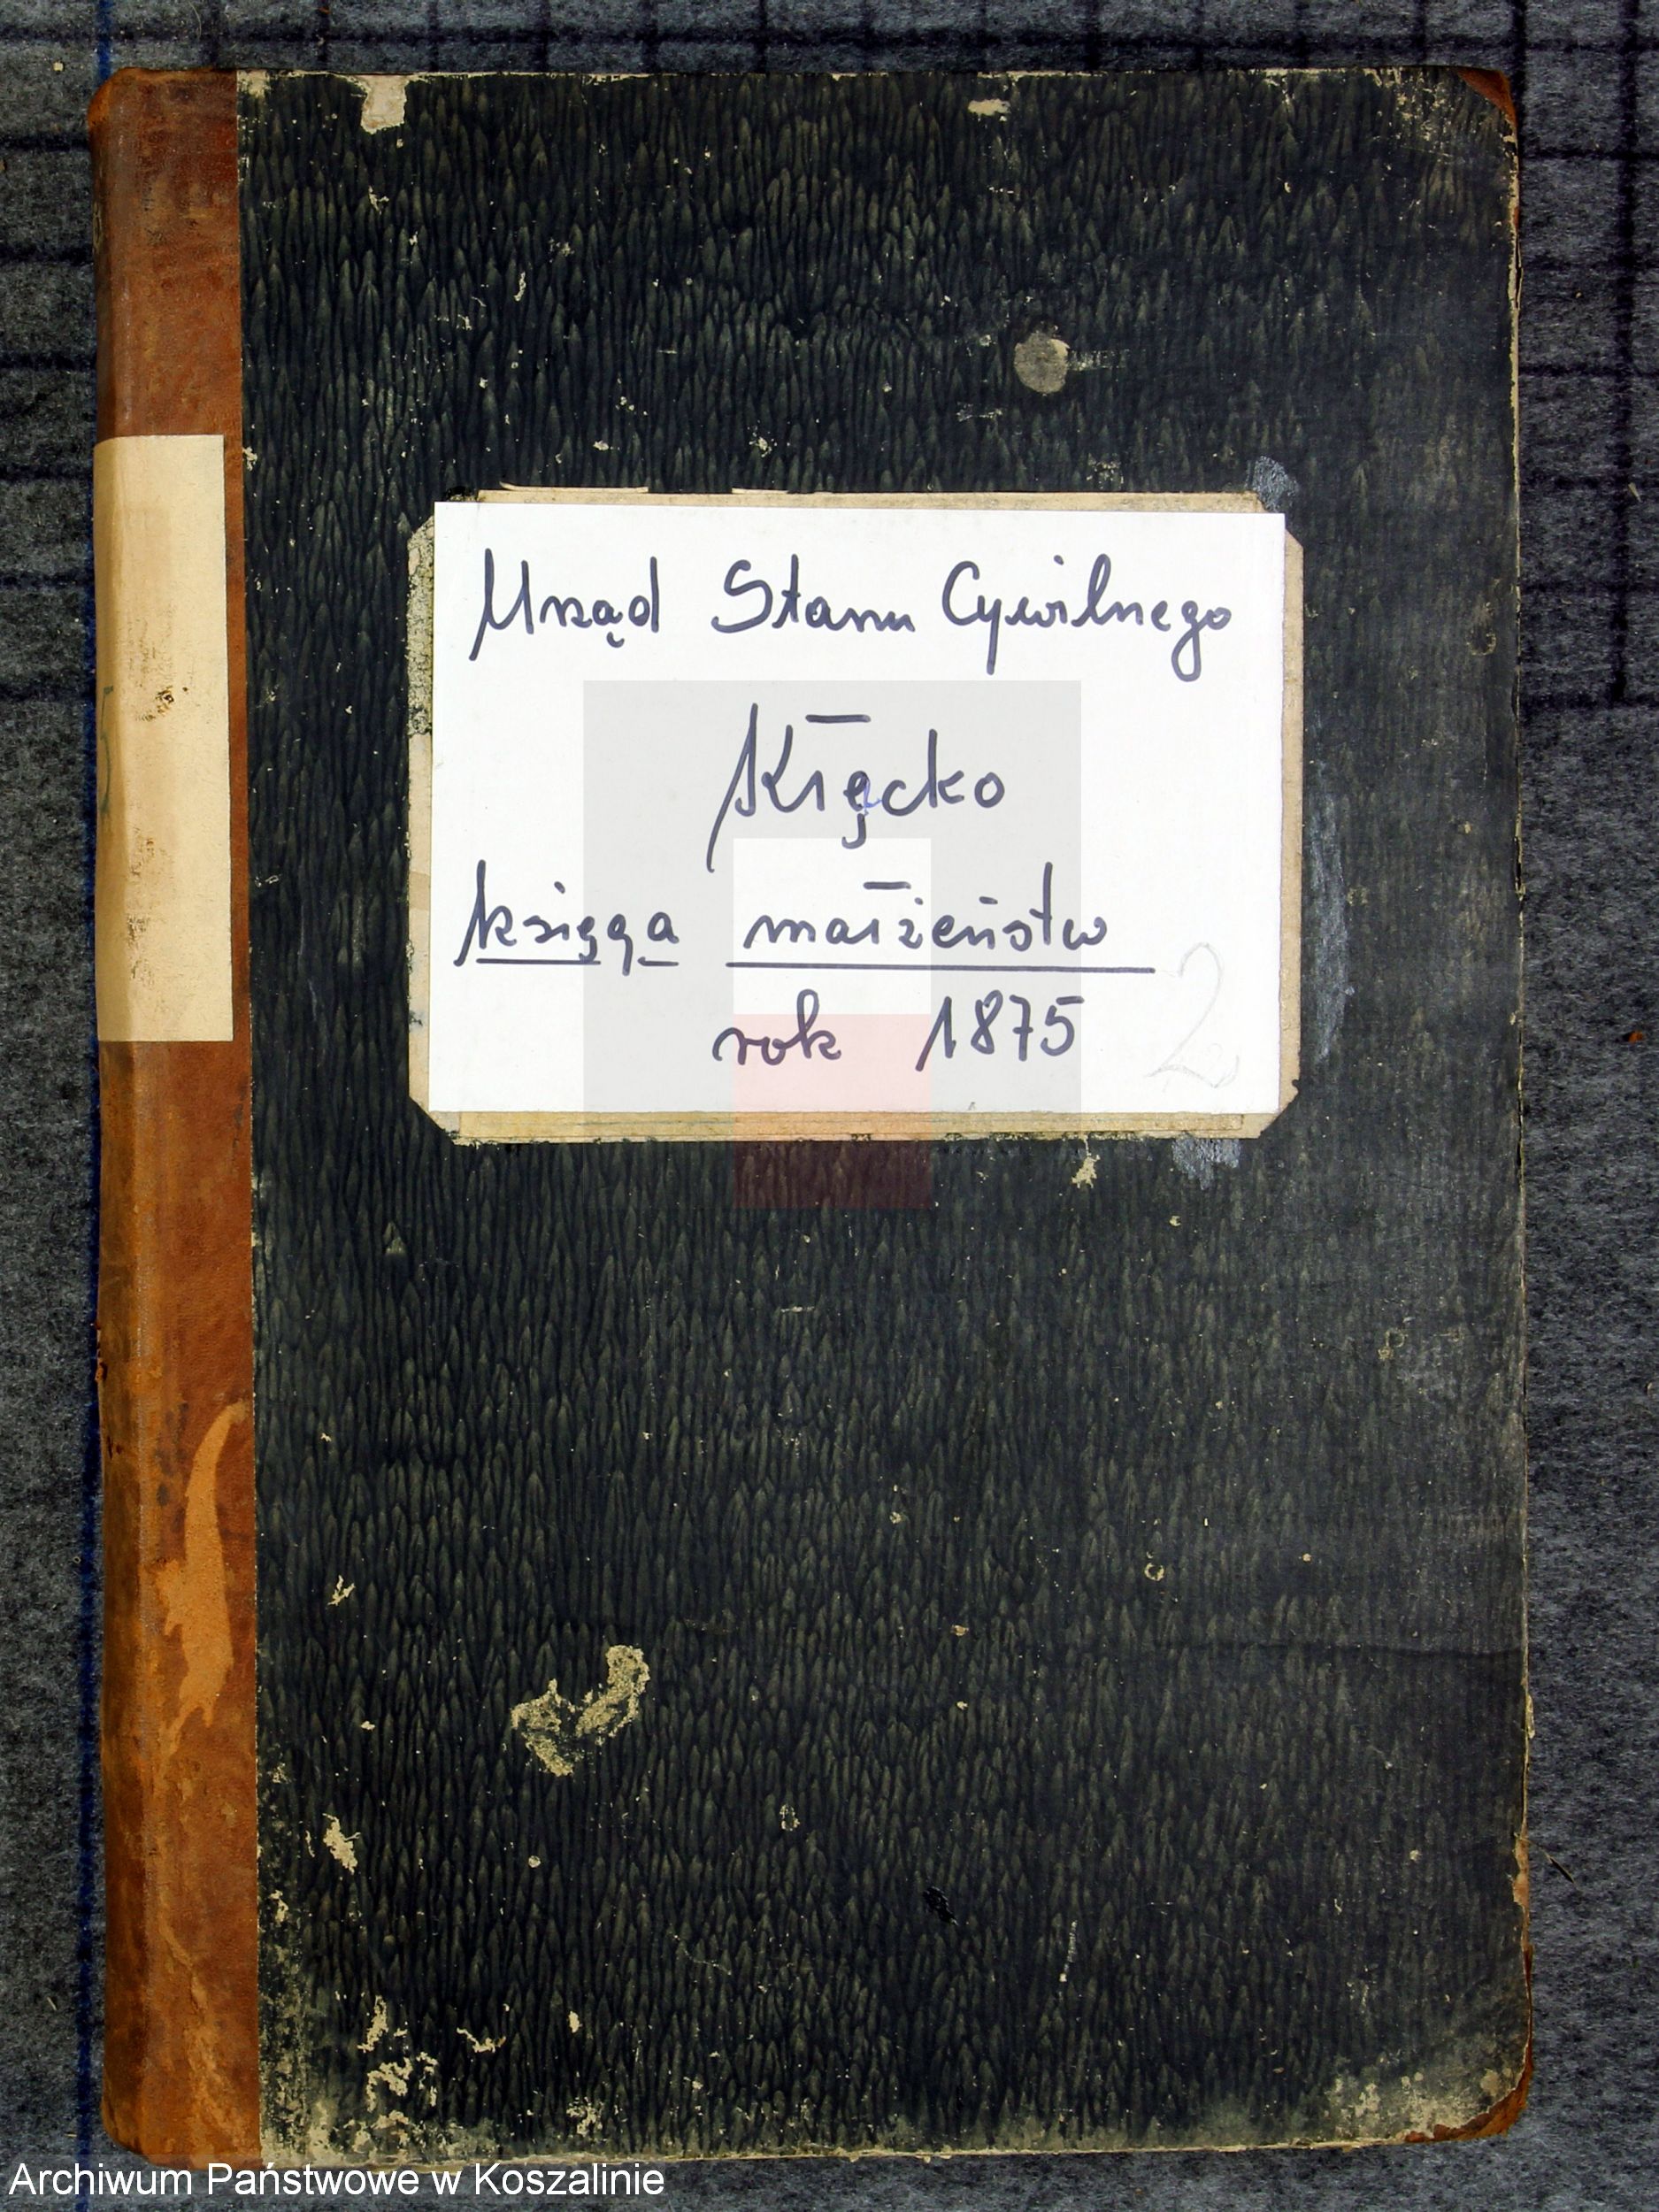 Urząd Stanu Cywilnego
Kłęcko
księga małżeństw
rok 1875
2
Archiwum Państwowe w Koszalinie